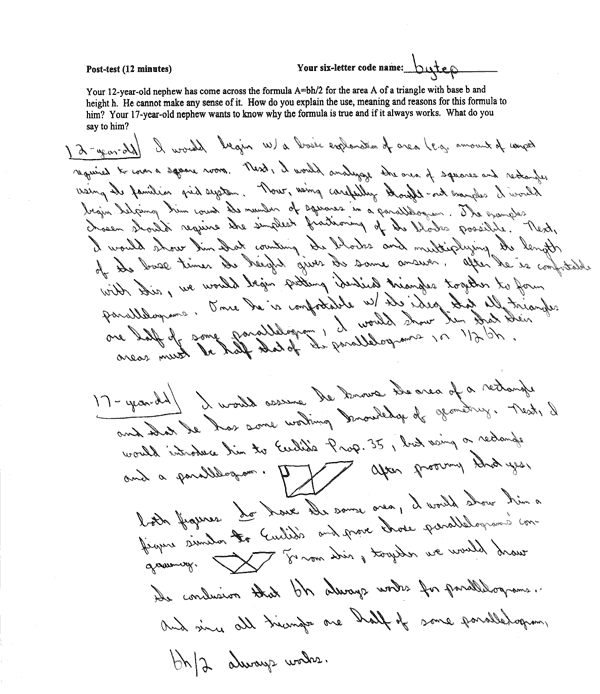 Post-test (12 minutes) Your six-letter code name: bytep
Your 12-year-old nephew has come across the formula A=bh/2 for the area A of a triangle with base b and
height h. He cannot make any sense of it. How do you explain the use, meaning and reasons for this formula to
him? Your 17-year-old nephew wants to know why the formula is true and if it always works. What do you
say to him?
12-year-old I would begin w/ a basic explanation of area (e.g. amount of carpet
required to cover a square room. Next, I would analyze the area of squares and rectangles
using the familiar grid system. Now, using carefully thought-out examples I would
begin helping him count the number of squares in a parallelogram. The examples
chosen should require the simplest fractioning of the blocks possible. Next,
I would show him that counting the blocks and multiplying the length
of the base times the height gives the same answer. After he is comfortable
with this, we would begin putting identical triangles together to form
parallelograms. Once he is comfortable w/ the idea that all triangles
are half of some parallelogram, I would show him that their
areas must be half that of the parallelograms or 1/2 bh.
17-year-old I would assume he knows the area of a rectangle
and that he has some working knowledge of geometry. Next, I
would introduce him to Euclid's Prop. 35, but using a rectangle
and a parallelogram. After proving that yes,
both figures do have the same area, I would show him a
figure similar to Euclid's and prove those parallelograms' con-
gruency. From this, together we would draw
the conclusion that bh always works for parallelograms.
And since all triangles are half of some parallelogram,
bh/2 always works.